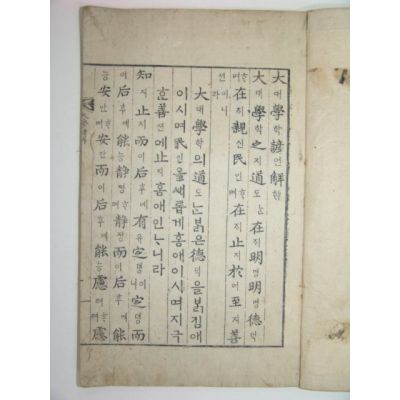 大대學학諺언解ᄒᆡ
大대學학之지道도ᄂᆞᆫ在ᄌᆡ明명明명德덕
ᄒᆞ며在ᄌᆡ親신民민ᄒᆞ며在ᄌᆡ止지於어至지善
션이니라
大대學학의道도ᄂᆞᆫ붉은德덕을붉킴애
이시며民민을새롭게홈애이시며지극
ᄒᆞᆫ善션에止지홈애인ᄂᆞ니라
知지止지而이后후에有유定뎡이니定뎡而
이后후에能능靜졍ᄒᆞ며靜졍而이后후에能
능安안ᄒᆞ며安안而이后후에能능慮려ᄒᆞ며慮